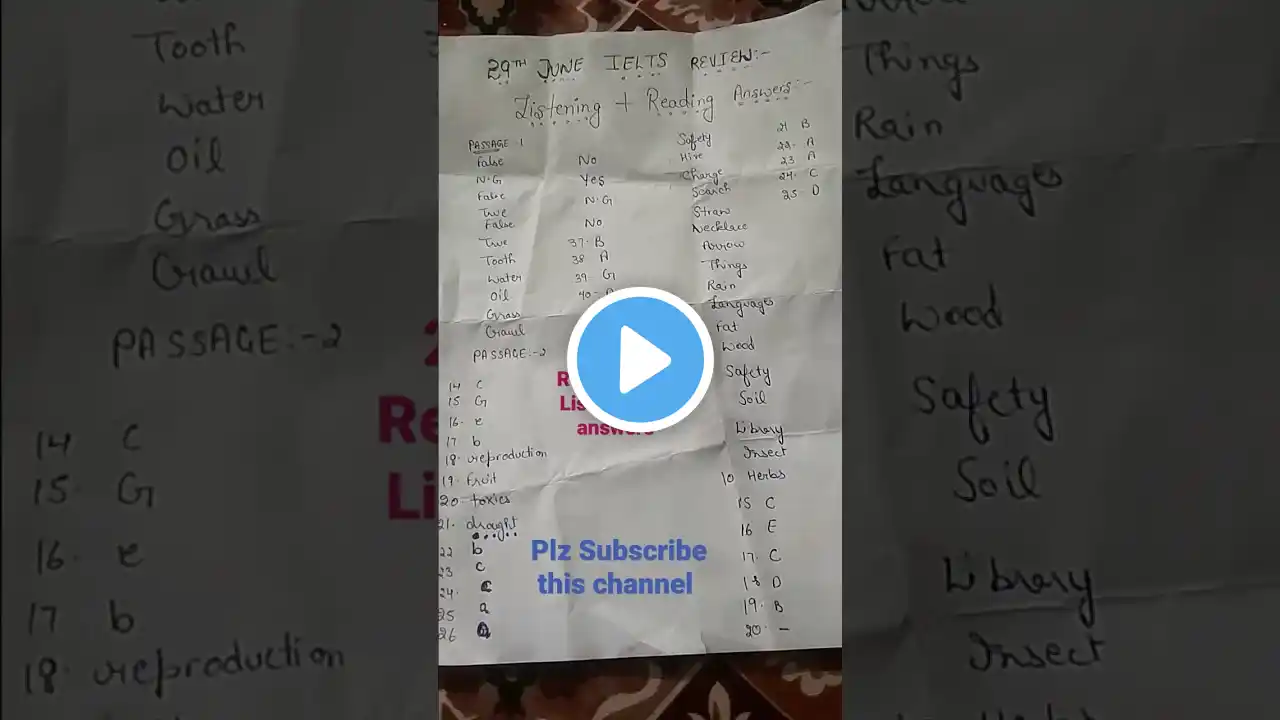 29TH JUNE IELTS REVIEW:-
Listening + Reading Answers:-
PASSAGE-1
False
N.G
False
True
False
True
Tooth
Water
Oil
Grass
Crawl
PASSAGE:-2
14 C
15 G
16. e
17 b
18. reproduction
19. Fruit
20. toxics
21. drought
22 b
23 C
24. C
25 a
26
No
Yes
N.G
No
37. B
38 A
39. G
40-
answers
Plz Subscribe
this channel
Safety
Hire
Charge
Search
Straw
Necklace
Arrow
Things
Rain
Languages
Fat
Wood
Safety
Soil
Library
Insect
10 Herbs
15 C
16 E
17. C
18 D
19. B
20. -
21 B
22. A
23 A
24. C
25. D
Tooth
Water
Oil
Grass
Crawl
PASSAGE:-2
14 C
15 G
16. e
17 b
18. reproduction
Things
Rain
Languages
Fat
Wood
Safety
Soil
Library
Insect